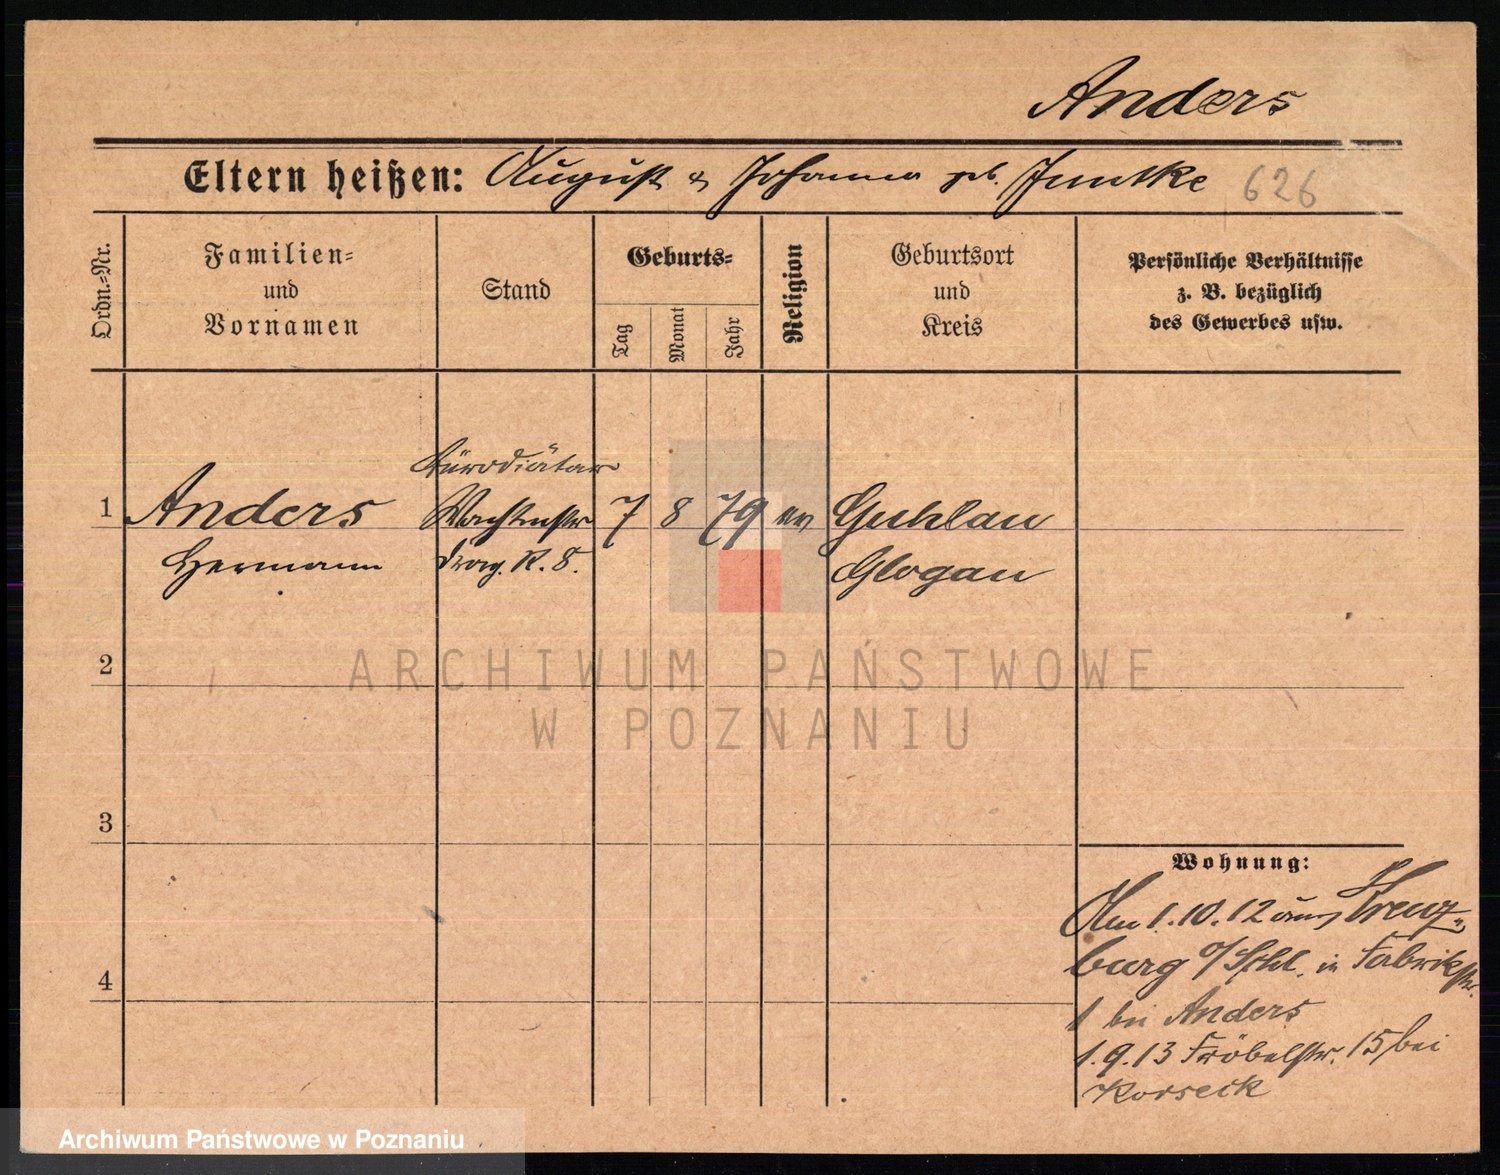 Anders
Eltern heißen: August & Johanna geb. Juntke 626
Ordn.-Nr.
Familien-
und
Vornamen
Stand
Geburts-
Tag
Monat
Jahr
Religion
Geburtsort
und
Kreis
Persönliche Verhältnisse
z. B. bezüglich
des Gewerbes usw.
Bürodiätar
1 Anders 7 8 79 ev Guhlau
Hermann Drag. R. 8. Glogau
2
ARCHIWUM PAŃSTWOWE
W POZNANIU
3
4
Wohnung:
Am 1.10.12 aus Kreuz-
burg o/Schl. in Fabrikstr.
1 bei Anders
1.9.13 Fröbelstr. 15 bei
Korseck
Archiwum Państwowe w Poznaniu